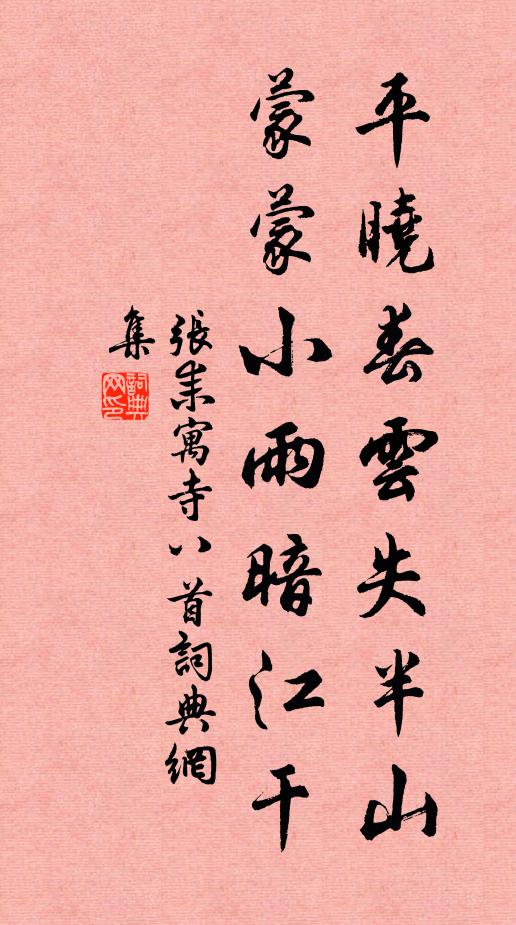 平曉春雲失半山
蒙蒙小雨暗江干
張耒寓寺八首詞典網
集
詞典
网印